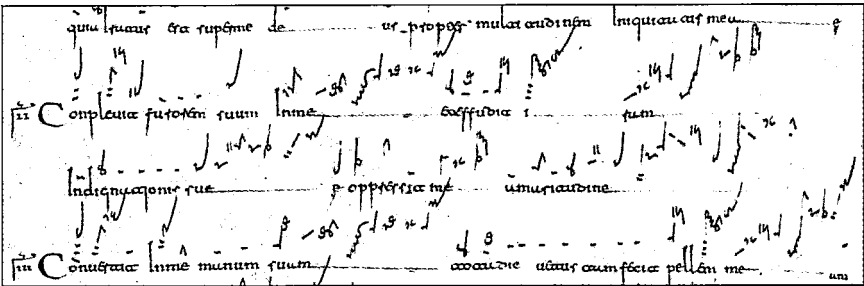 quia Iratus est super me de us propter multitudinem Iniquitatis mea
Conplevit furorem suum In me et effudit i ram
Indignationis sue oppressit me amaritudine
Convertit In me manum suam tota die uetus tam fecit pellem me am